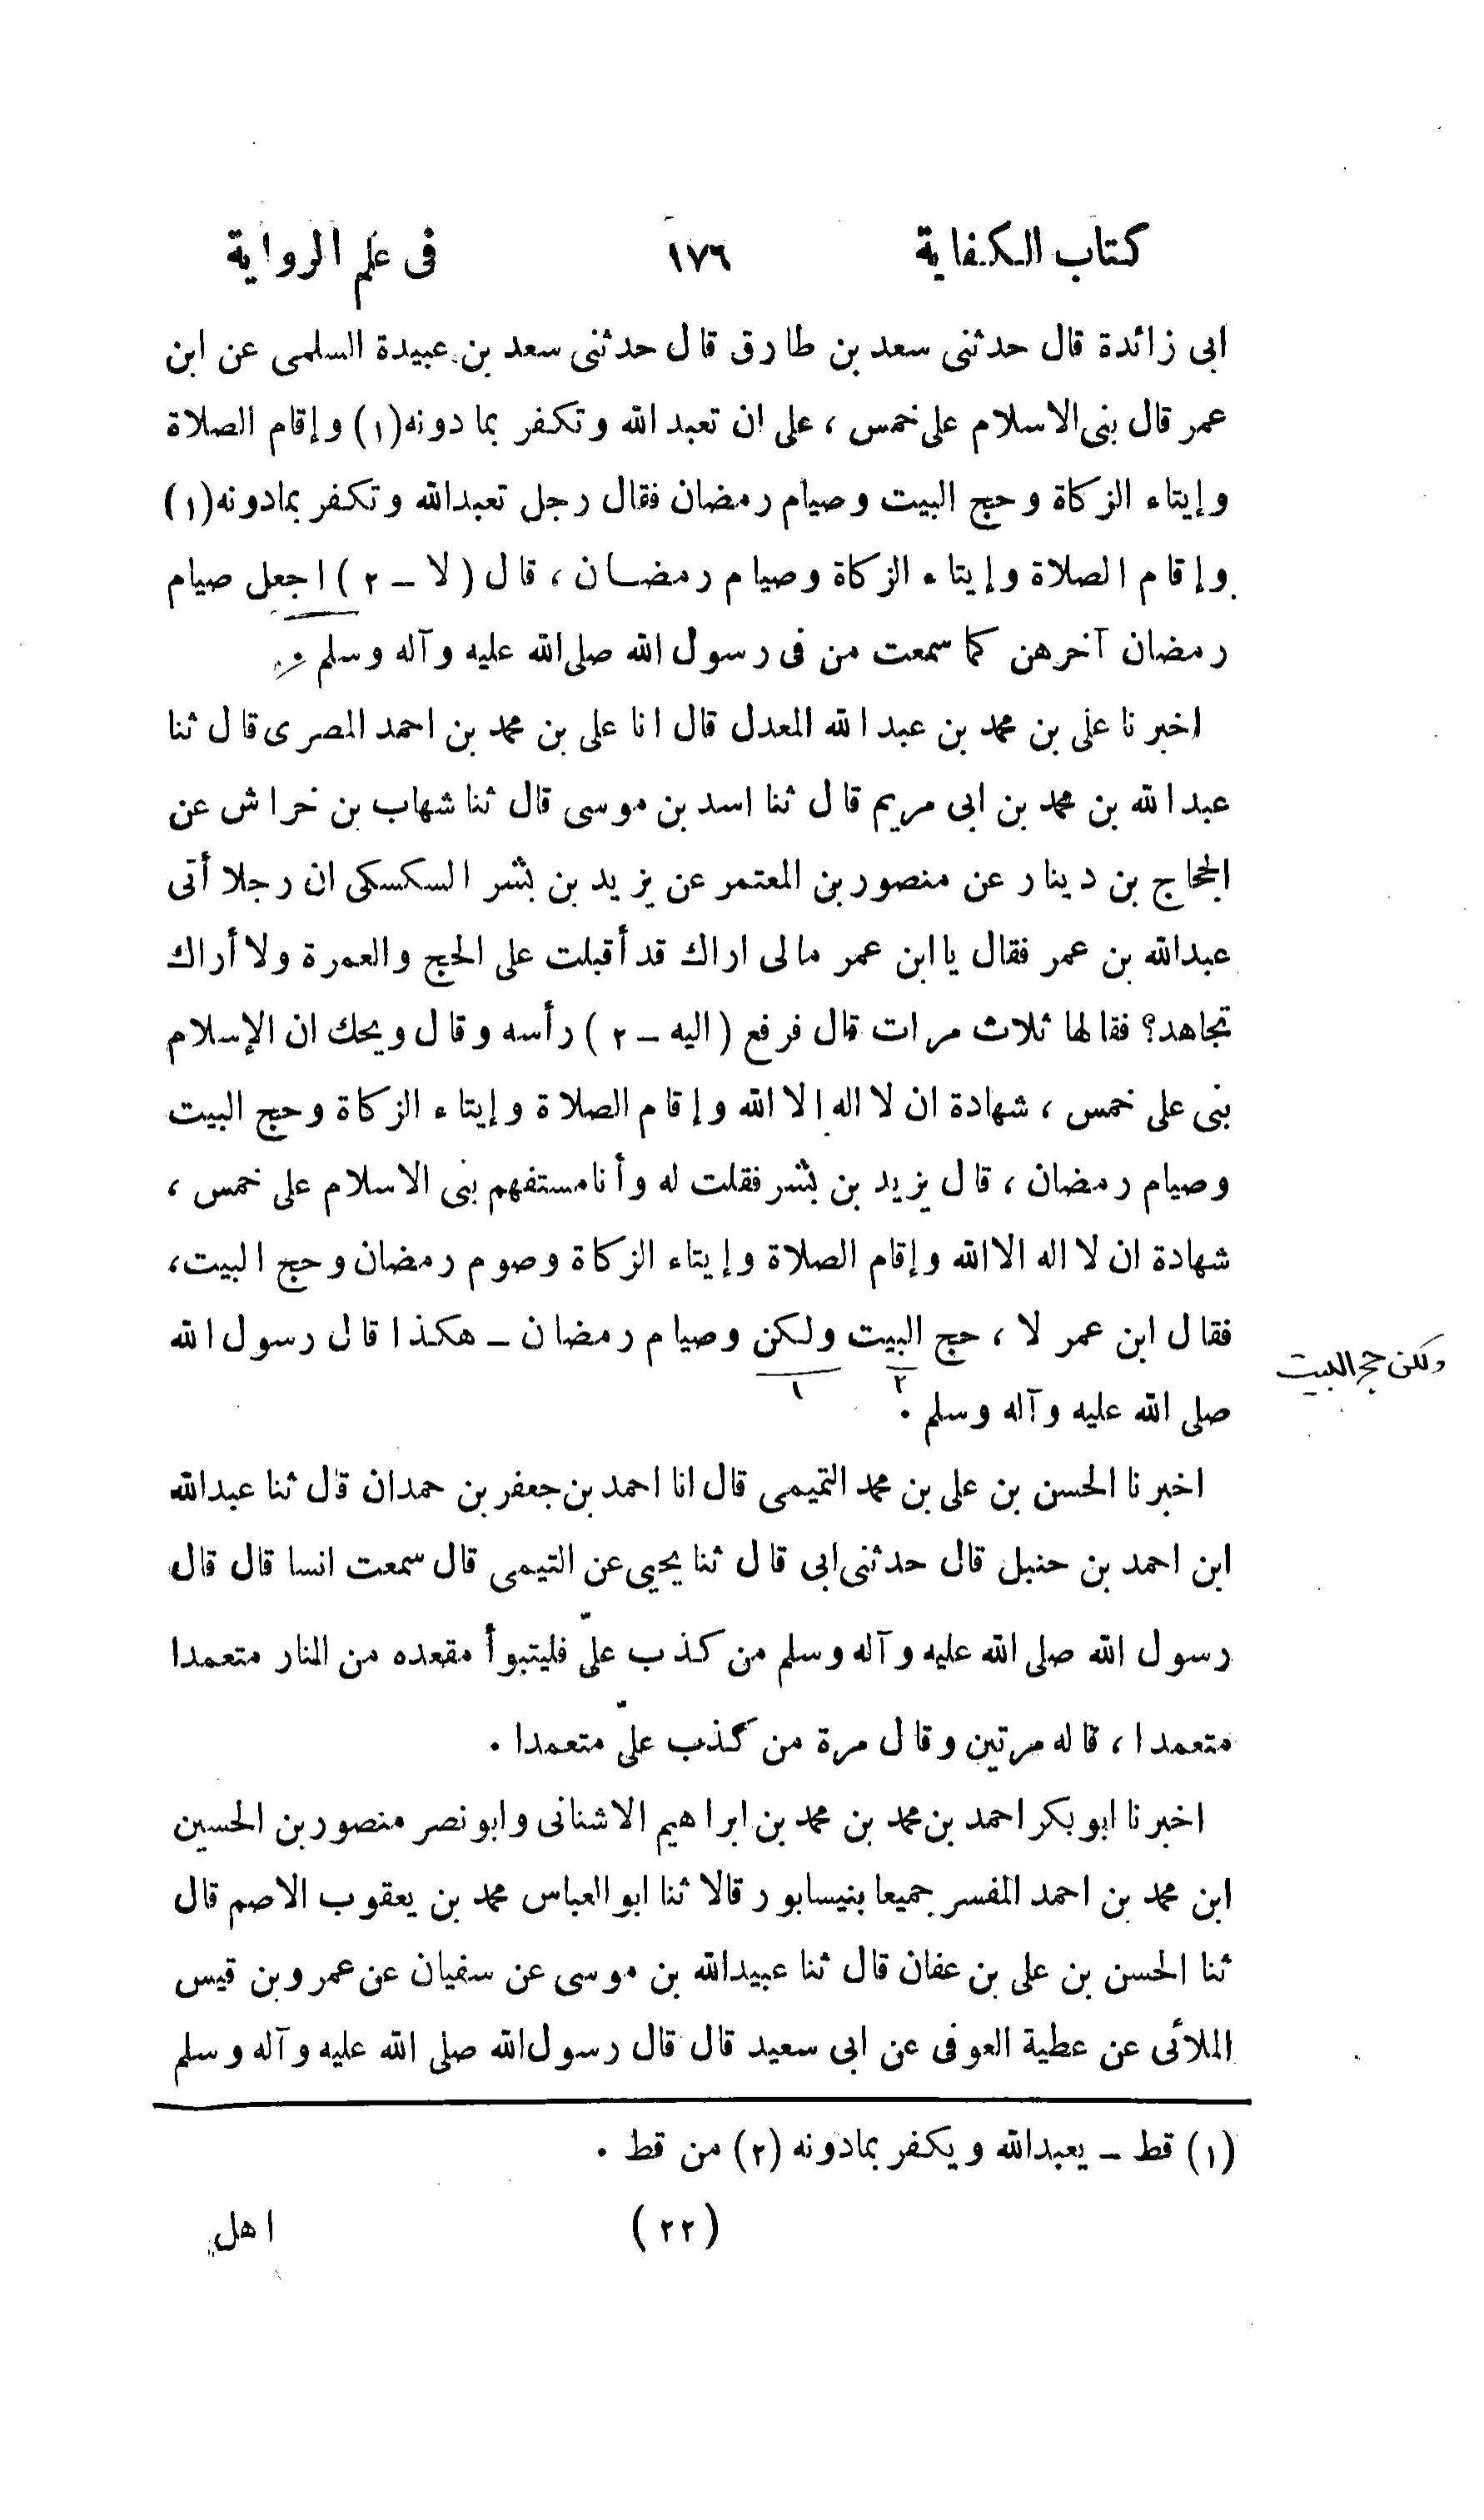 كتاب الكفاية ١٧٦ فى علم الرواية
ابى زائدة قال حدثنى سعد بن طارق قال حدثنى سعد بن عبيدة السلمى عن ابن
عمر قال بنى الاسلام على خمس ، على ان تعبد الله وتكفر بما دونه (١) وإقام الصلاة
وإيتاء الزكاة وحج البيت وصيام رمضان فقال رجل تعبد الله وتكفر بمادونه (١)
وإقام الصلاة وإيتاء الزكاة وصيام رمضان ، قال ( لا – ٢ ) اجعل صيام
رمضان آخرهن كما سمعت من فى رسول الله صلى الله عليه وآله وسلم .
اخبرنا على بن محمد بن عبد الله المعدل قال انا على بن محمد بن احمد المصرى قال ثنا
عبد الله بن محمد بن ابى مريم قال ثنا اسد بن موسى قال ثنا شهاب بن خراش عن
الحجاج بن دينار عن منصور بن المعتمر عن يزيد بن بشر السكسكى ان رجلا أتى
عبد الله بن عمر فقال يا ابن عمر مالى اراك قد أقبلت على الحج والعمرة ولا أراك
تجاهد؟ فقالها ثلاث مرات قال فرفع ( اليه – ٢ ) رأسه وقال ويحك ان الإسلام
بنى على خمس ، شهادة ان لا اله إلا الله وإقام الصلاة وإيتاء الزكاة وحج البيت
وصيام رمضان ، قال يزيد بن بشر فقلت له وأنا مستفهم بنى الاسلام على خمس ،
شهادة ان لا اله الا الله وإقام الصلاة وإيتاء الزكاة وصوم رمضان وحج البيت ،
فقال ابن عمر لا ، حج البيت ولكن وصيام رمضان – هكذا قال رسول الله
ولكن حج البيت
٢ ١
صلى الله عليه وآله وسلم .
اخبرنا الحسن بن على بن محمد التميمى قال انا احمد بن جعفر بن حمدان قال ثنا عبد الله
ابن احمد بن حنبل قال حدثنى ابى قال ثنا يحيى عن التيمى قال سمعت انسا قال قال
رسول الله صلى الله عليه وآله وسلم من كذب علىّ فليتبوأ مقعده من النار متعمدا
متعمدا ، قاله مرتين وقال مرة من كذب علىّ متعمدا .
اخبرنا ابوبكر احمد بن محمد بن محمد بن ابراهيم الاشنانى وابو نصر منصور بن الحسين
ابن محمد بن احمد المفسر جميعا بنيسابور قالا ثنا ابو العباس محمد بن يعقوب الاصم قال
ثنا الحسن بن على بن عفان قال ثنا عبيد الله بن موسى عن سفيان عن عمرو بن قيس
الملائى عن عطية العوفى عن ابى سعيد قال قال رسول الله صلى الله عليه وآله وسلم
(١) قط – يعبد الله ويكفر بمادونه (٢) من قط .
(٢٢) اهل